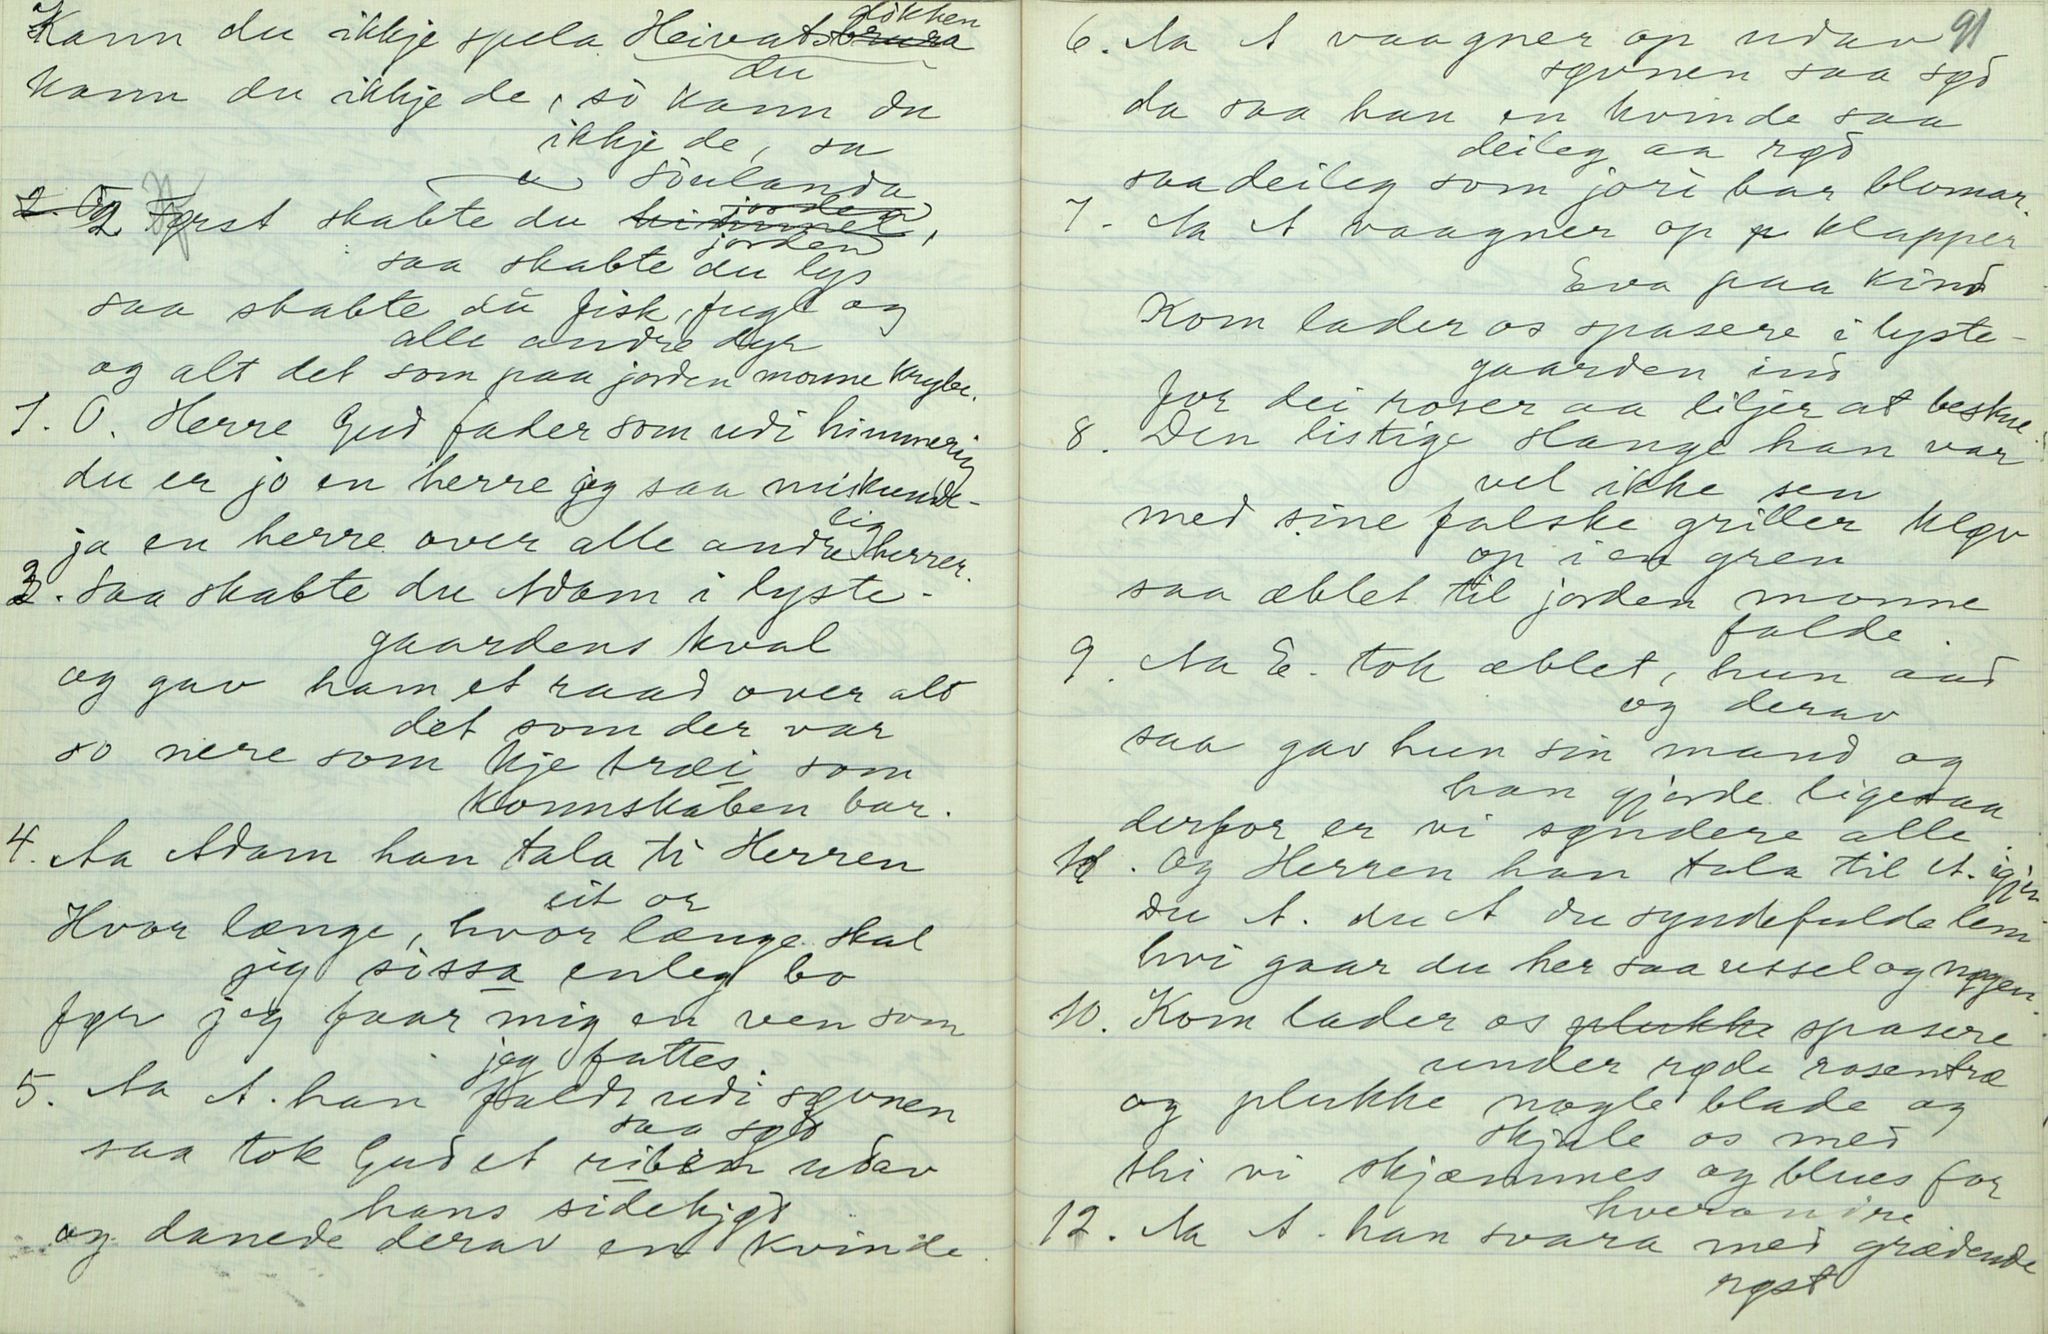 Kann du ikkje spela Heivats slökken
kann du ikkje de, so kann du
du
ikkje de, sa
Söulanda
2 Først skabte du
jorden
saa skabte du lys
saa skabte du fisk, fugl og
alle andre dyr
og alt det som paa jorden monne krybe.
1. O. Herre Gud fader som udi himmerig
du er jo en herre jeg saa miskunde-
lig
ja en herre over alle andre herrer.
3. Saa skabte du Adam i lyste-
gaardens kval
og gav ham et raad over alt
det som der var
so nere som kje træi som
konnskaben bar.
4. Aa Adam han tala ti Herren
eit or
Hvor længe, hvor længe skal
jeg sissa enleg bo
før jeg faar mig en ven som
jeg fattes
5. Aa A. han faldt udi søvnen
saa sød
saa tok Gud et riben udav
hans sidekjød
og danede derav en kvinde
91
6. Aa A vaagner op udav
søvnen saa sød
da saa han en kvinde saa
deileg aa rød
saa deileg som jori bar blomar.
7. Aa A vaagner op klapper
Eva paa kind
Kom lader os spasere i lyste-
gaarden ind
for dei roser aa liljer at beskue.
8. Den listige slange han var
vel ikke sen
med sine falske griller kløv
op i en gren
saa æblet til jorden monne
falde.
9. Aa E. tok æblet, hun aad
og derav
saa gav hun sin mand og
han gjorde ligesaa
derfor er vi syndere alle
11. Og Herren han tala til A. igjen
Du A. du A du syndefulde lem
hvi gaar du her saa ussel og nøgen.
10. Kom lader os plukke spasere
under røde rosentræ
og plukke nogle blade og
skjule os med
thi vi skjæmmes og blues for
hverandre
12. Aa A. han svara med grædende
røst